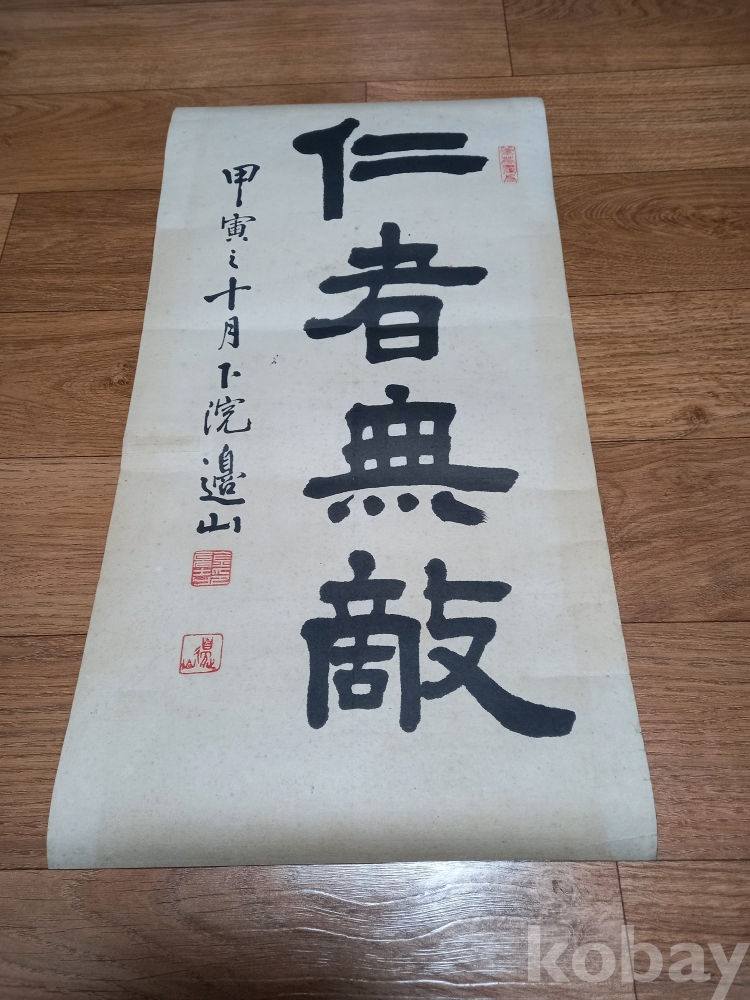 仁者無敵
甲寅之十月下浣邊山
kobay